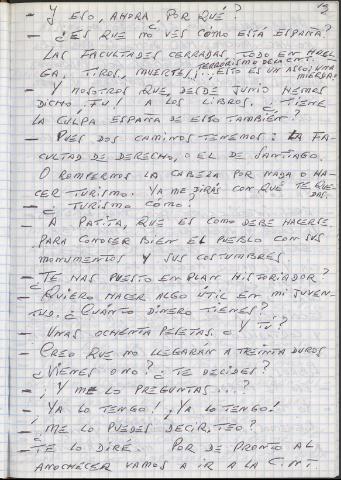 13
- Y ESO, AHORA, ¿POR QUÉ?
- ¿ES QUE NO VES COMO ESTÁ ESPAÑA?
LAS FACULTADES CERRADAS, TODO EN HUEL
GA, TIROS, MUERTES,
TERRORISMO DE LA CNT!
..., ESTO ES UN ASCO, UNA
MIERDA!
- Y NOSOTROS QUE, DESDE JUNIO HEMOS
DICHO ¡FU! A LOS LIBROS, ¿TIENE
LA CULPA ESPAÑA DE ESTO TAMBIÉN?
- PUES DOS CAMINOS TENEMOS: LA FA-
CULTAD DE DERECHO, O EL DE SANTIAGO.
O ROMPERNOS LA CABEZA POR NADA O HA-
CER TURISMO. YA ME DIRÁS CON QUÉ TE QUE
DAS.
- ¿TURISMO CÓMO?
- A PATITA, QUE ES COMO DEBE HACERSE
PARA CONOCER BIEN EL PUEBLO CON SUS
MONUMENTOS Y SUS COSTUMBRES.
- ¿TE HAS PUESTO EN PLAN HISTORIADOR?
- QUIERO HACER ALGO ÚTIL EN MI JUVEN-
TUD. ¿CUÁNTO DINERO TIENES?
- UNAS OCHENTA PELETAS. ¿Y TÚ?
- CREO QUE NO LLEGARÁN A TREINTA DUROS
¿VIENES O NO? ¿TE DECIDES?
- ¡Y ME LO PREGUNTAS...?
- ¡YA LO TENGO! ¡YA LO TENGO!
- ¿ME LO PUEDES DECIR, TEO?
- TE LO DIRÉ. POR DE PRONTO AL
ANOCHECER VAMOS A IR A LA C.N.T.